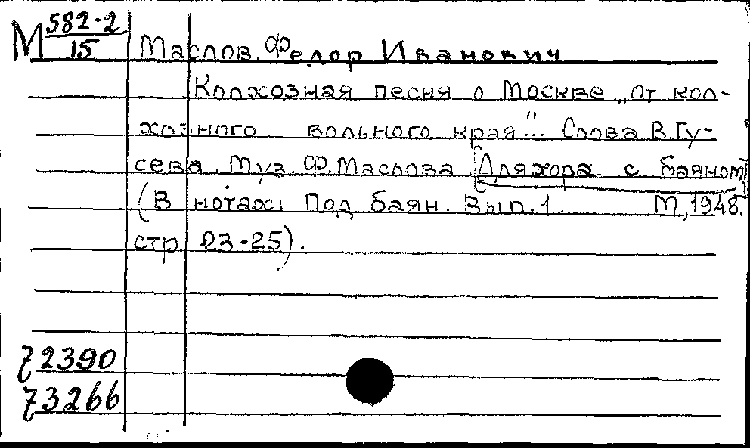 М 582-2
15
Маслов, Федор Иванович
Колхозная песня о Москве „От кол-
хозного вольного края"... Слова В. Гу-
сева. Муз. Ф. Маслова [Для хора с баяном]
(В нотах: Под баян. Вып. 1 М., 1948.
стр. 23-25).
72390
73266